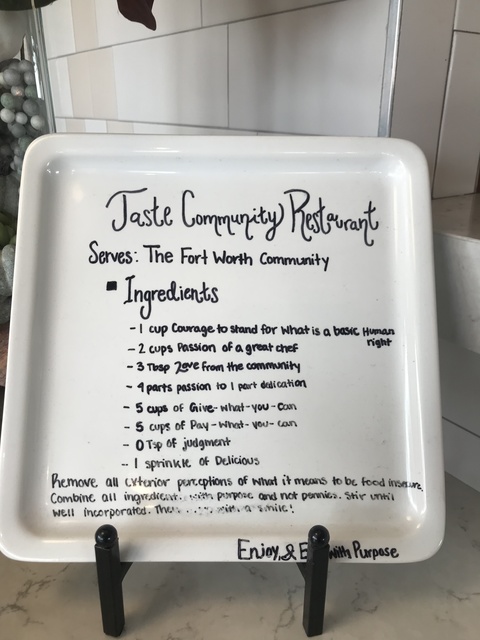 Taste Community Restaurant
Serves: The Fort Worth Community
Ingredients
- 1 cup Courage to stand for what is a basic Human
right
- 2 cups Passion of a great chef
- 3 Tbsp Love from the community
- 4 parts passion to 1 part dedication
- 5 cups of Give-what-you-can
- 5 cups of Pay-what-you-can
- 0 Tsp of judgment
- 1 sprinkle of Delicious
Remove all exterior perceptions of what it means to be food insecure.
Combine all with purpose and not pennies. Stir until
well incorporated. with a smile!
Enjoy & with Purpose